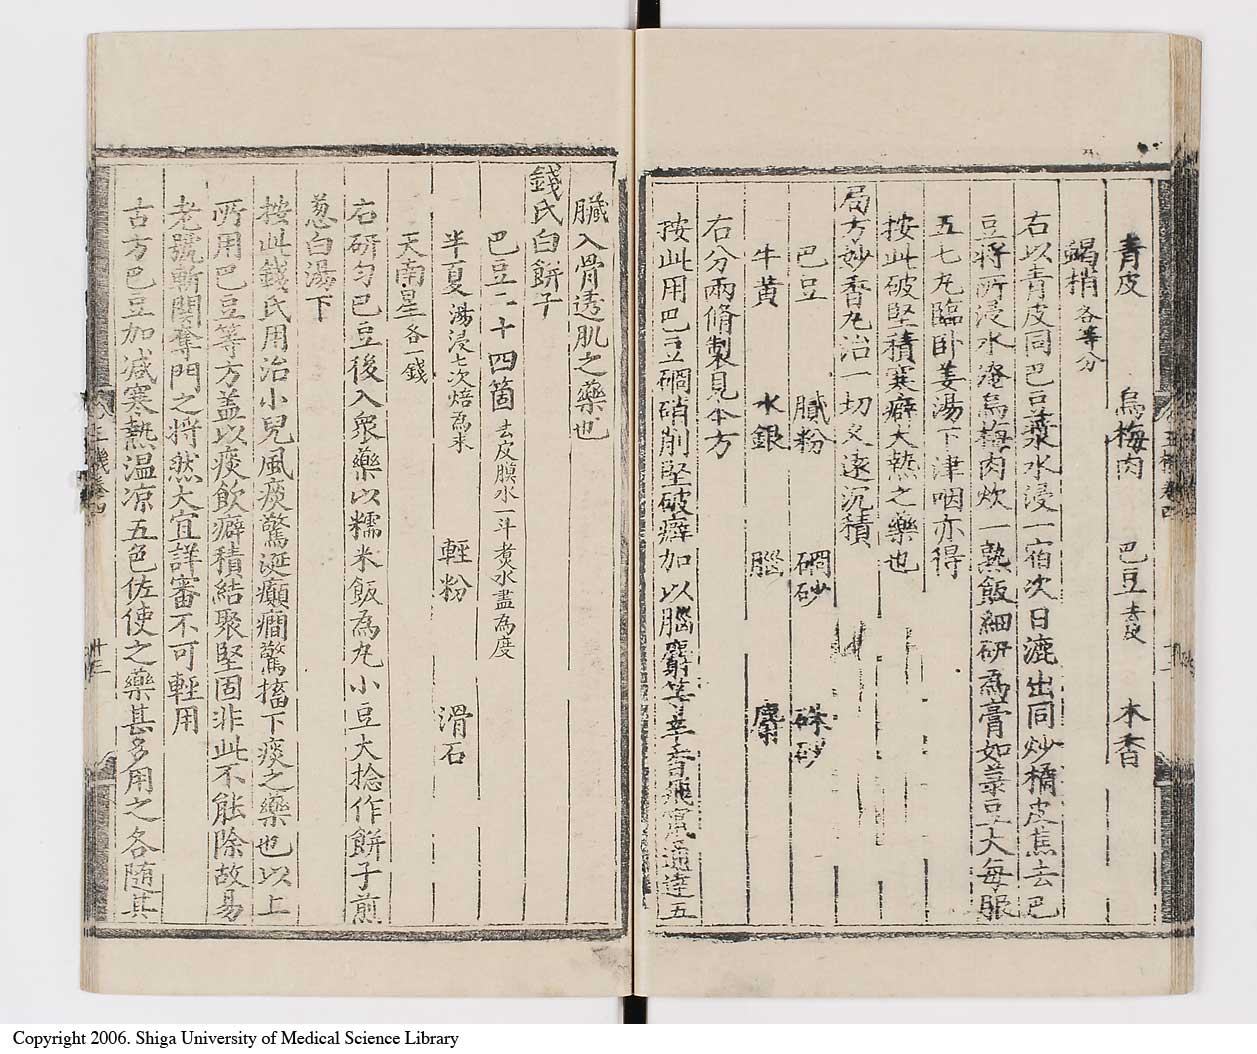 青皮 烏梅肉 巴豆去皮 木香
蝎梢各等分
右以青皮同巴豆漿水浸一宿次日漉出同炒橘皮焦去巴
豆將所浸水淹烏梅肉炊一熟飯細研為膏如菉豆大每服
五七丸臨卧姜湯下津咽亦得
按此破堅積寒癖大熱之藥也
局方妙香丸治一切久遠沉積
巴豆 膩粉 硇砂 硃砂
牛黃 水銀 腦 麝
右分兩脩製見本方
按此用巴豆硇硝削堅破癖加以腦麝等辛香飛竄通達五
臟入骨透肌之藥也
錢氏白餅子
巴豆二十四箇去皮膜水一斗煑水盡為度
半夏湯浸七次焙為末 輕粉 滑石
天南星各一錢
右研匀巴豆後入衆藥以糯米飯為丸小豆大捻作餅子煎
葱白湯下
按此錢氏用治小兒風痰驚涎癲癎驚搐下痰之藥也以上
所用巴豆等方盖以痰飲癖積結聚堅固非此不能除故易
老號斬關奪門之将然大宜詳審不可輕用
古方巴豆加减寒熱温凉五色佐使之藥甚多用之各随其
卅三